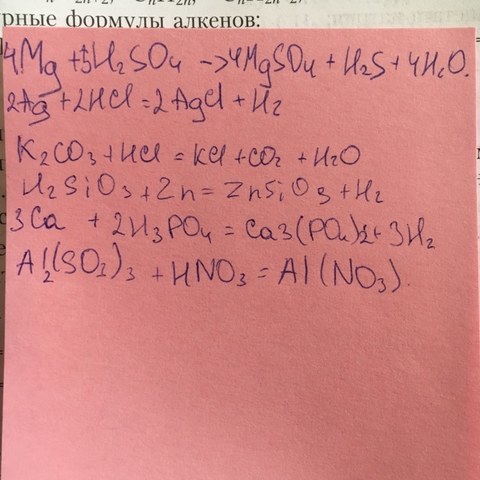 рные формулы алкенов:
4Mg + 5H₂SO₄ → 4MgSO₄ + H₂S + 4H₂O.
2Ag + 2HCl = 2AgCl + H₂
K₂CO₃ + HCl = KCl + CO₂ + H₂O
H₂SiO₃ + Zn = ZnSiO₃ + H₂
3Ca + 2H₃PO₄ = Ca₃(PO₄)₂ + 3H₂
Al₂(SO₃)₃ + HNO₃ = Al(NO₃).